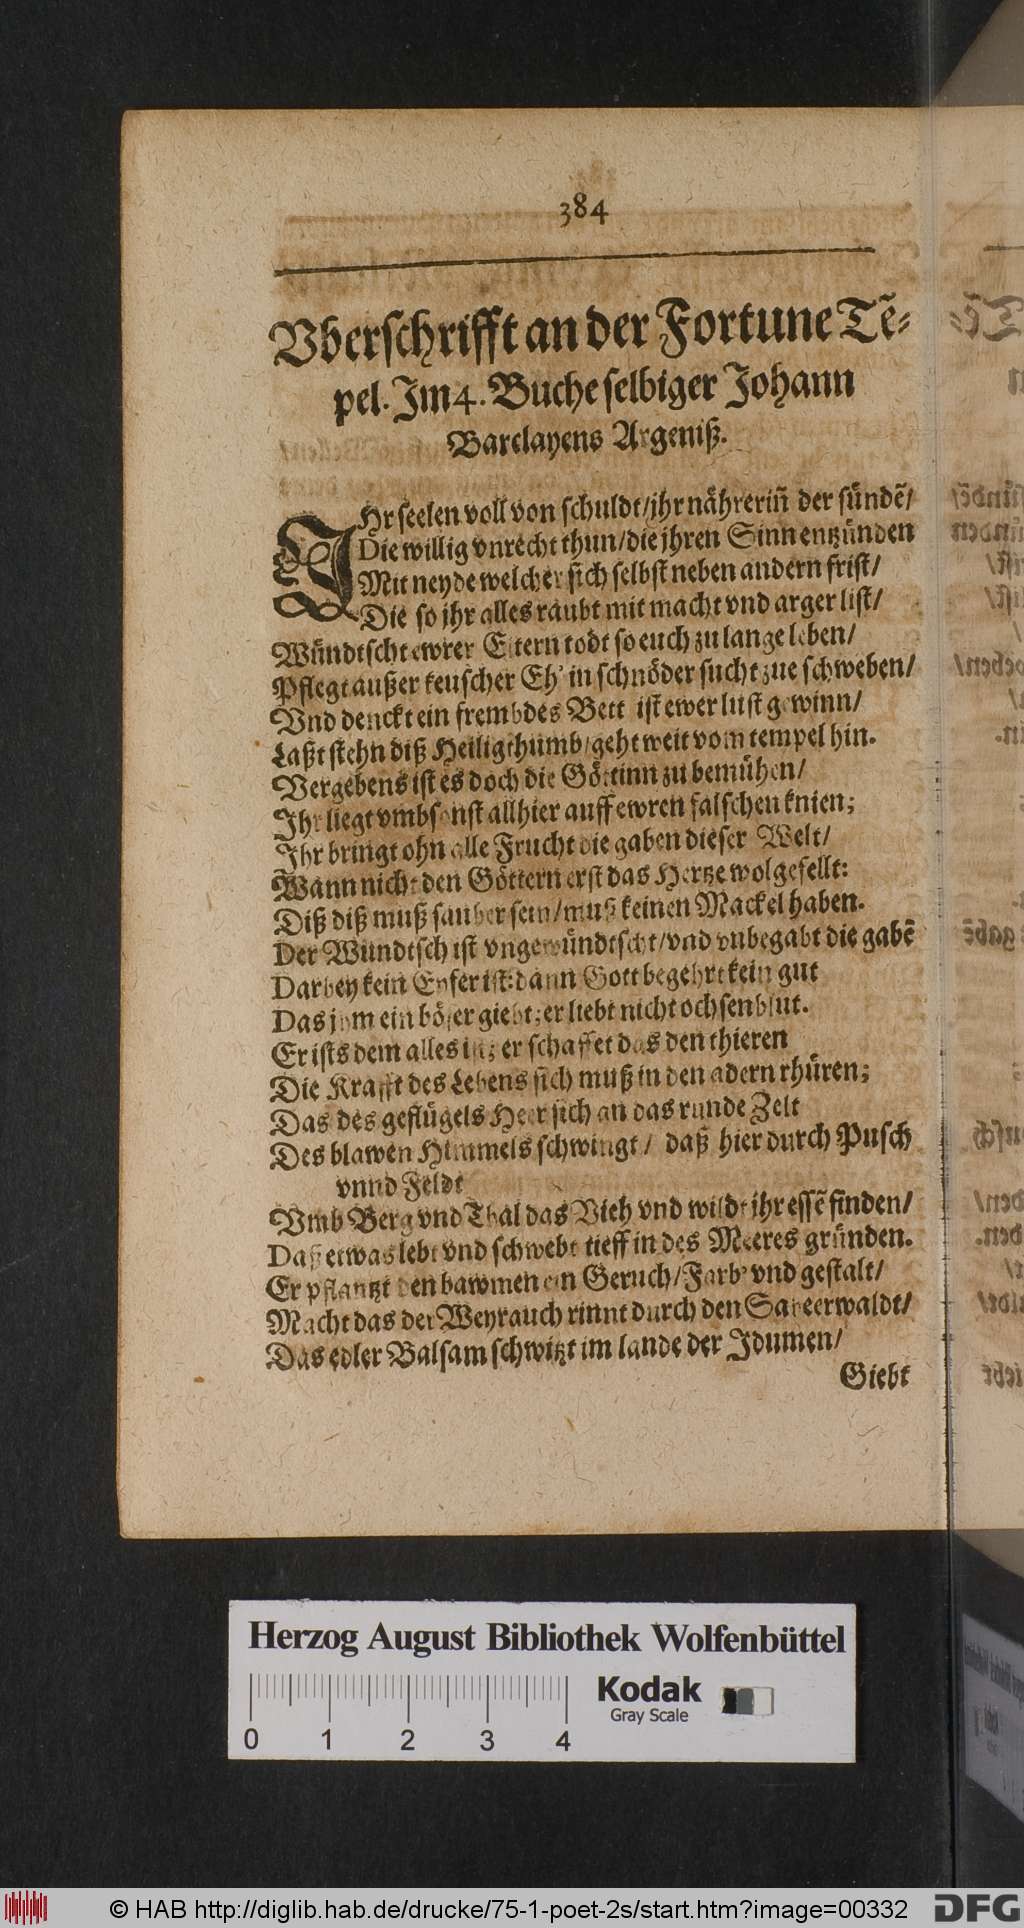 384
Vberschrifft an der Fortune Tẽ-
pel. Im 4. Buche selbiger Johann
Barclayens Argeniß.
IHr seelen voll von schuldt/ jhr nährerin̄ der sündẽ/
Die willig vnrecht thun/ die jhren Sinn entzünden
Mit neyde welcher sich selbst neben andern frist/
Die so jhr alles raubt mit macht vnd arger list/
Wündtscht ewrer Eltern todt so euch zu lange leben/
Pflegt außer keuscher Eh' in schnöder sucht zue schweben/
Vnd denckt ein frembdes Bett ist ewer lust gewinn/
Laßt stehn diß Heiligthumb/ geht weit vom tempel hin.
Vergebens ist es doch die Göttinn zu bemühen/
Ihr liegt vmbsonst allhier auff ewren falschen knien;
Ihr bringt ohn alle Frucht die gaben dieser Welt/
Wann nicht den Göttern erst das Hertze wolgefellt:
Diß diß muß sauber sein/ muß keinen Mackel haben.
Der Wündtsch ist vngewündtscht/ vnd vnbegabt die gabẽ
Darbey kein Eyfer ist: dann Gott begehrt kein gut
Das jhm ein böser giebt; er liebt nicht ochsenblut.
Er ists dem alles ist; er schaffet das den thieren
Die Krafft des Lebens sich muß in den adern rhüren;
Das des geflügels Heer sich an das runde Zelt
Des blawen Himmels schwingt/ daß hier durch Pusch
vnnd Feldt
Vmb Berg vnd Thal das Vieh vnd wildt ihr essẽ finden/
Daß etwas lebt vnd schwebt tieff in des Meeres gründen.
Er pflantzt den bawmen ein Geruch/ Farb' vnd gestalt/
Macht das der Weyrauch rinnt durch den Sabeerwaldt/
Das edler Balsam schwitzt im lande der Idumen/
Giebt
Herzog August Bibliothek Wolfenbüttel
Kodak
Gray Scale
0 1 2 3 4
© HAB http://diglib.hab.de/drucke/75-1-poet-2s/start.htm?image=00332
DFG